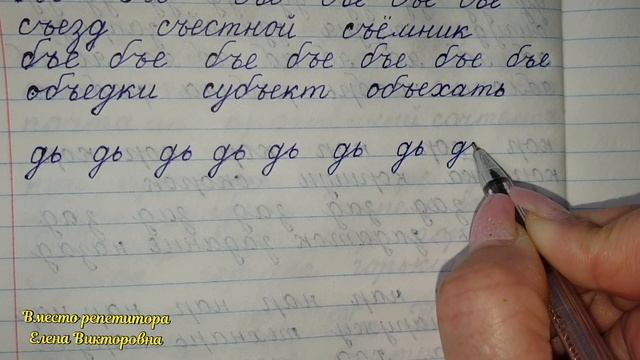 съезд съестной съёмник
бъе бъе бъе бъе бъе бъе бъе
объедки субъект объехать
дь дь дь дь дь дь дь д
Вместо репетитора
Елена Викторовна